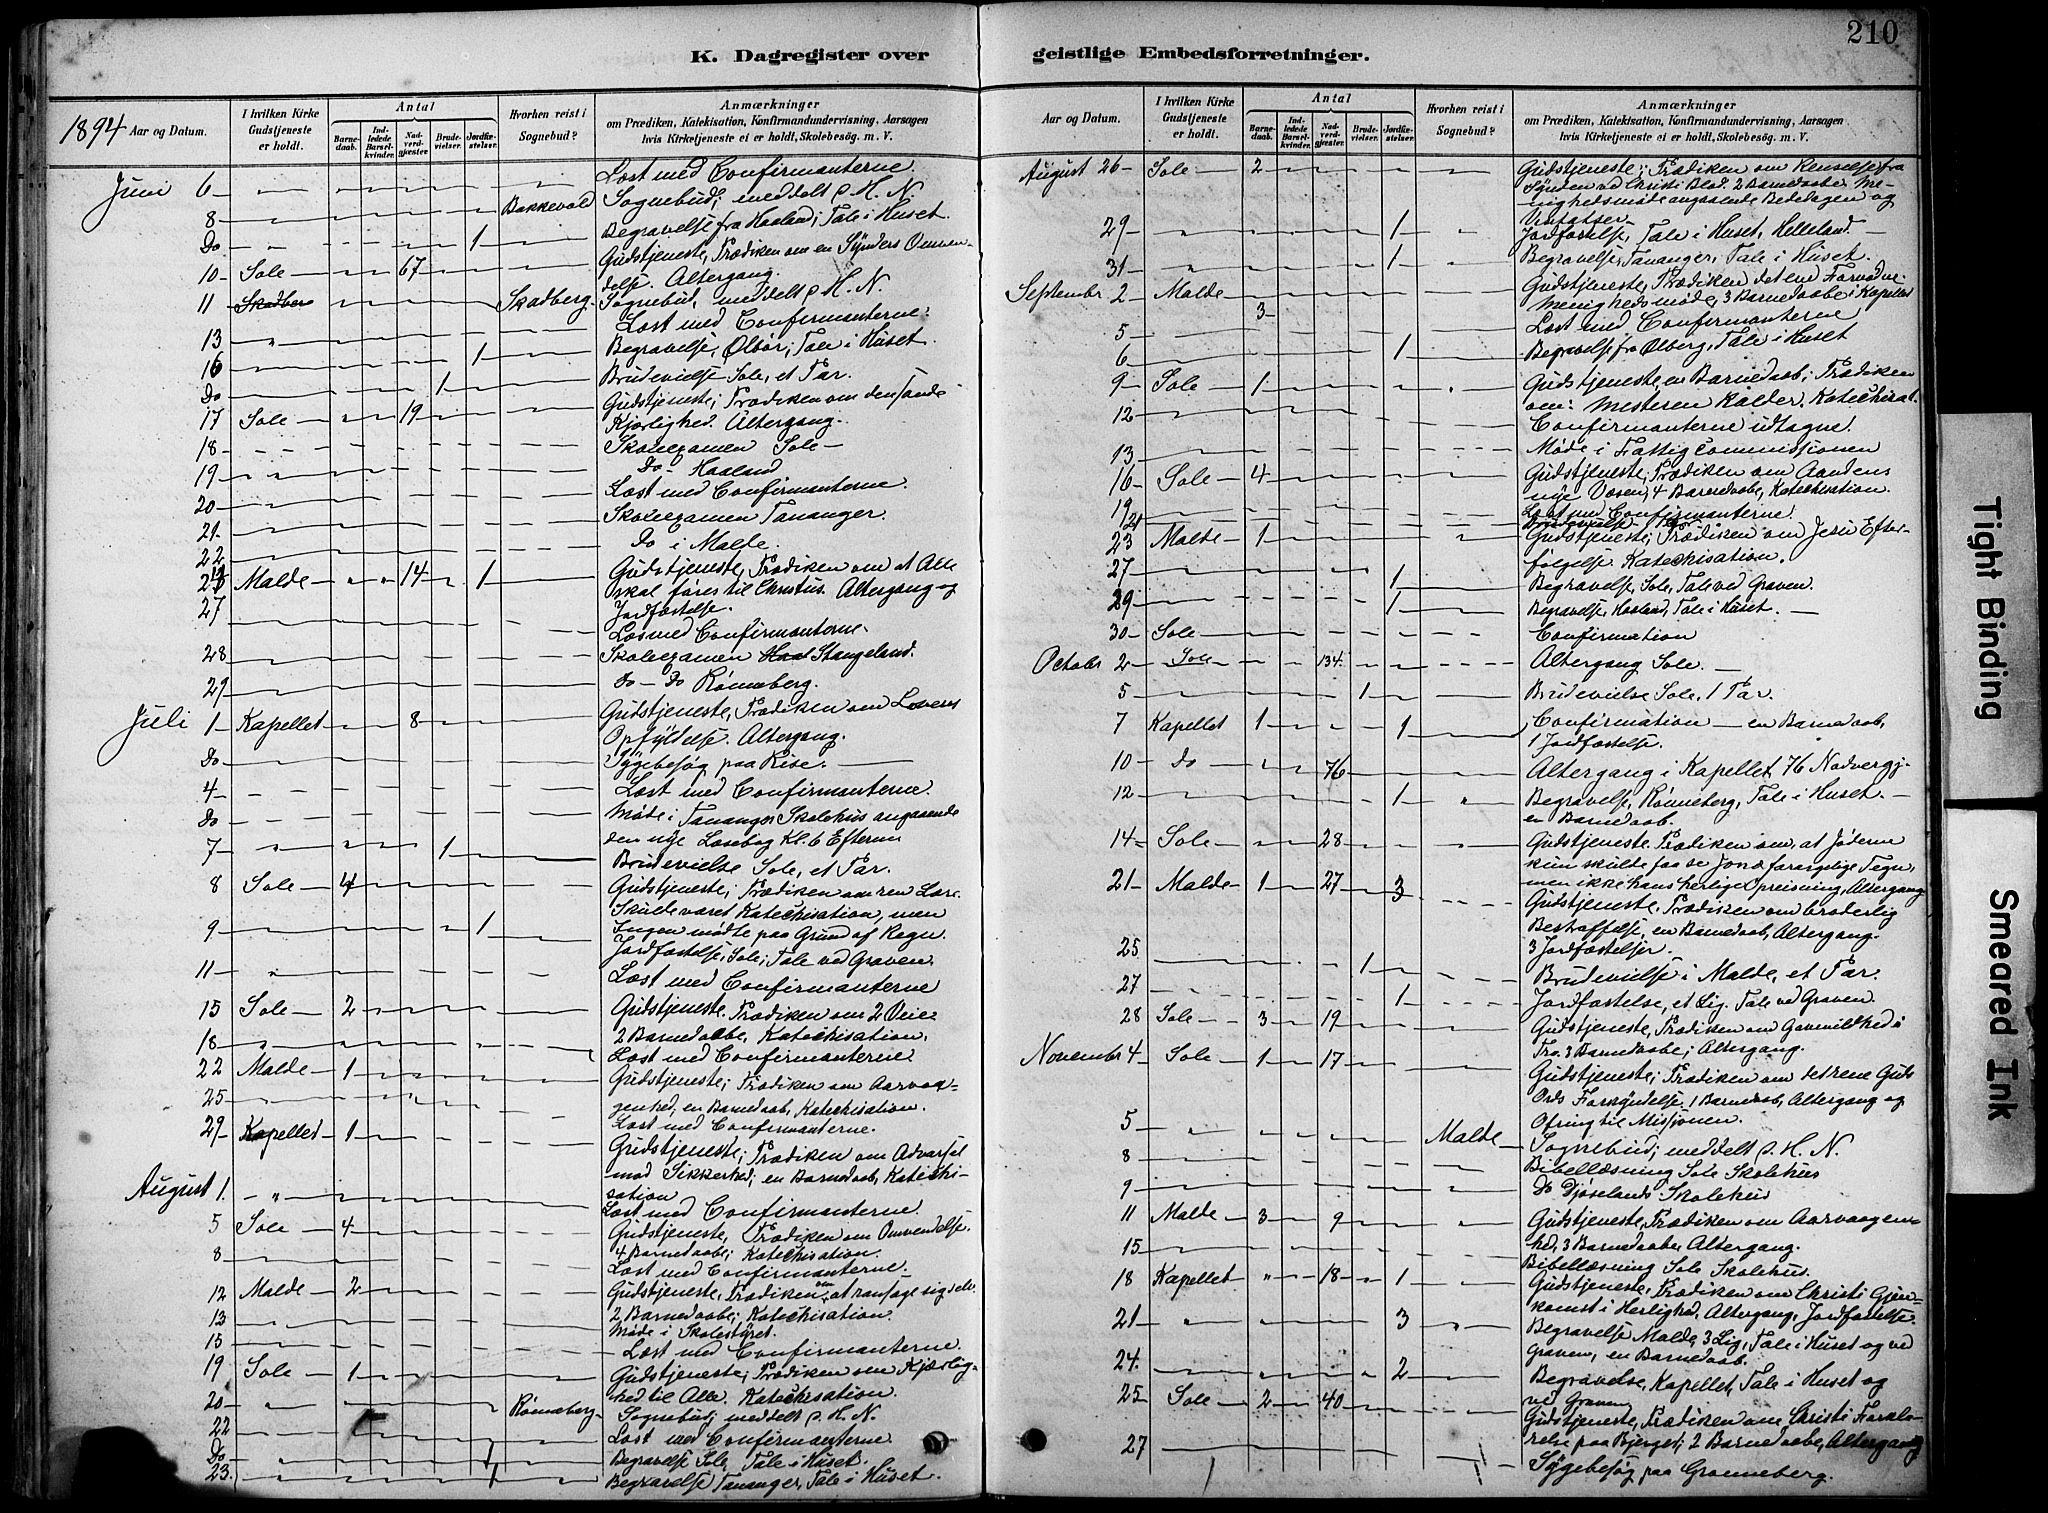 210
K. Dagregister over geistlige Embedsforretninger.
1894 Aar og Datum.
I hvilken Kirke Gudstjeneste er holdt.
Antal
Barnedaab.
Indledede Barselkvinder.
Nadverdgjester.
Brudevielser.
Jordfæstelser.
Hvorhen reist i Sognebud?
Anmærkninger
om Prædiken, Katekisation, Konfirmandundervisning, Aarsagen
hvis Kirketjeneste ei er holdt, Skolebesøg. m. V.
Juni 6 Læst med Confirmanterne.
8 Bakkevold Sognebud; meddelt d. H. N.
Do 1 Begravelse fra Haaland; Tale i Huset.
10 Sole 67 Gudstjeneste, Prædiken om en Synders Omven-
delse. Altergang.
11 Skadberg Sognebud, meddelt d. H. N.
13 Læst med Confirmanterne.
16 1 Begravelse, Ølbør; Tale i Huset
Do 1 Brudevielse Sole, et Par.
17 Sole 19 Gudstjeneste; Prædiken om den sande
Kjærlighed. Altergang.
18 Skoleexamen Sole
19 Do Haaland
20 Læst med Confirmanterne.
21 Skoleexamen Tananger.
22 Do i Malde.
24 Malde 14 1 Gudstjeneste, Prædiken om at Alle
skal føres til Christus. Altergang og
Jordfæstelse.
27 Læs med Confirmanterne.
28 Skoleexamen Stangeland.
29 Do Do Rønneberg.
Juli 1 Kapellet 8 Gudstjeneste, Prædiken om Lovens
Opfyldelse. Altergang.
Do Sygebesøg paa Rise.
4 Læst med Confirmanterne.
Do Møde i Tananger Skolehus angaaende
den nye Læsebog Kl. 6 Efterm
7 1 Brudevielse Sole, et Par.
8 Sole 4 Gudstjeneste; Prædiken om ren Lære.
Skulde været Katechisation, men
Ingen mødte paa Grund af Regn.
9 1 Jordfæstelse, Sole; Tale ved Graven.
11 Læst med Confirmanterne
15 Sole 2 Gudstjeneste. Prædiken om 2 Veie
2 Barnedaabe, Katechisation.
18 Læst med Confirmanterne.
22 Malde 1 Gudstjeneste; Prædiken om Aarvaa-
genhed, en Barnedaab, Katechisation.
25 Læst med Confirmanterne.
29 Kapellet 1 Gudstjeneste; Prædiken om Advarsel
mod Sikkerhed; en Barnedaab, Katechi-
sation
August 1. Læst med Confirmanterne.
5 Sole 4 Gudstjeneste, Prædiken om Omvendelse.
4 Barnedaabe; Katechisation.
8 Læst med Confirmanterne.
12 Malde 2 Gudstjeneste, Prædiken om at ransage sig selv.
2 Barnedaabe; Katechisation.
13 Møde i Skolestyret.
15 Læst med Confirmanterne.
19 Sole 1 Gudstjeneste; Prædiken om Kjærlig-
hed til Alle. Katechisation.
20 Rønneberg Sognebud; meddelt d. H. N.
22 Læst med Confirmanterne.
Do 1 Begravelse Sole, Tale i Huset.
23 1 Begravelse Tananger, Tale i Huset.
Aar og Datum.
I hvilken Kirke Gudstjeneste er holdt.
Antal
Barnedaab.
Indledede Barselkvinder.
Nadverdgjester.
Brudevielser.
Jordfæstelser.
Hvorhen reist i Sognebud?
Anmærkninger
om Prædiken, Katekisation, Konfirmandundervisning, Aarsagen
hvis Kirketjeneste ei er holdt, Skolebesøg. m. V.
August 26 Sole 2 Gudstjeneste; Prædiken om Renselse fra
Synden ved Christi Blod. 2 Barnedaabe. Me-
nighedsmøde angaaende Bededagen og
29 1 Jordfæstelse, Tale i Huset, Helleland.
31 1 Begravelse, Tananger, Tale i Huset.
Septembr 2 Malde 3 Gudstjeneste, Prædiken det ene Fornødne.
Menighedsmøde, 3 Barnedaabe i Kapellet
5 Læst med Confirmanterne
6 1 Begravelse fra Ølberg, Tale i Huset
9 Sole 1 Gudstjeneste, en Barnedaab; Prædiken
om: Mesteren kalder. Katechisat.
12 Confirmanterne udtagne.
13 Møde i Fattigcommissionen
16 Sole 4 Gudstjeneste, Prædiken om Aandens
nye Væsen; 4 Barnedaabe, Katechisation.
19 Læst med Confirmanterne.
21
23 Malde 1 Gudstjeneste; Prædiken om Jesu Efter-
følgelse. Katechisation.
27 1 Begravelse, Sole, Tale ved Graven.
29 1 Begravelse, Haaland, Tale i Huset.
30 Sole Confirmation
Octobr 2 Sole 134 Altergang Sole.
5 1 Brudevielse Sole, 1 Par.
7 Kapellet 1 1 Confirmation en Barnedaab,
1 Jordfæstelse.
10 Do 76 Altergang i Kapellet, 76 Nadvergj.
12 1 Begravelse, Rønneberg, Tale i Huset.
en Barnedaab.
14 Sole 28 Gudstjeneste. Prædiken om, at Jøderne
kun skulde faa se Jonæ Tegn,
men ikke hans herlige Opreisning, Altergang
21 Malde 1 27 3 Gudstjeneste, Prædiken om broderlig
Bestraffelse, en Barnedaab, Altergang.
3 Jordfæstelser.
25 1 Brudevielse i Malde, et Par.
27 1 Jordfæstelse, et Lig. Tale ved Graven.
28 Sole 3 19 Gudstjeneste, Prædiken om Gavmildhed i
Tro. 3 Barnedaabe; Altergang.
Novembr 4 Sole 1 17 Gudstjeneste; Prædiken om det rene Guds
Ords Forkyndelse. 1 Barnedaab, Altergang og
Ofring til Missionen.
5 Malde Sognebud; meddelt d. H. N.
8 Bibellæsning Sole Skolehus
9 Do Skolehus
11 Malde 3 9 Gudstjeneste, Prædiken om Aarvaagen-
hed, 3 Barnedaabe, Altergang.
15 Bibellæsning Sole Skolehus.
18 Kapellet 18 1 Gudstjeneste, Prædiken om Christi Gjen-
komst i Herlighed, Altergang, Jordfæstelse.
21 3 Begravelse Malde, 3 Lig, Tale i Huset og ved
Graven, en Barnedaab.
24 2 Begravelse, Kapellet, Tale i Huset og
ved Graven
25 Sole 2 40 Gudstjeneste, Prædiken om Christi Forkla-
relse paa Bjerget; 2 Barnedaabe, Altergang
27 Sygebesøg paa Grønneberg.
Tight Binding
Smeared Ink